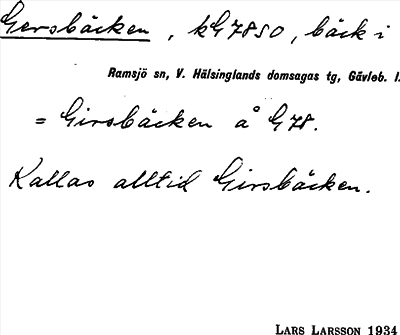 Gersbäcken, kG7850, bäck i
Ramsjö sn, V. Hälsinglands domsagas tg, Gävleb. l.
= Girsbäcken å G78.
Kallas alltid Girsbäcken.
LARS LARSSON 1934